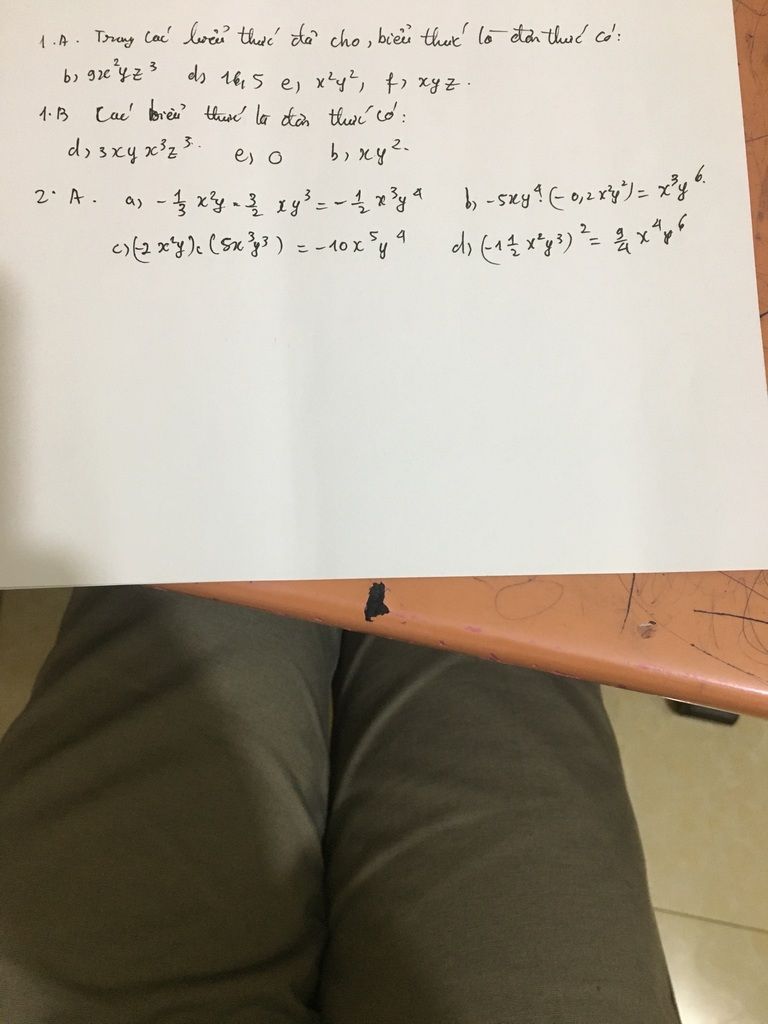 1.A. Trong các biểu thức đã cho, biểu thức là đơn thức có:
b, 9x²yz³ d, 16,5 e, x²y², f, xyz.
1.B Các biểu thức là đơn thức có:
d, 3xyx³z³. e, 0 b, xy².
2. A. a, -1/3 x²y . 3/2 xy³ = -1/2 x³y⁴ b, -5xy⁴. (-0,2x²y²) = x³y⁶.
c, (-2x²y). (5x³y³) = -10x⁵y⁴ d, (-1 1/2 x²y³)² = 9/4 x⁴y⁶